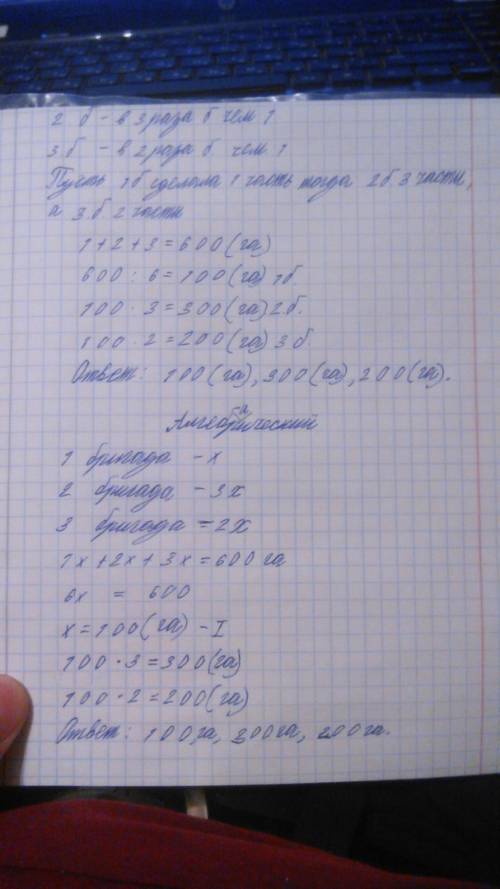 2 б - в 3 раза б чем 1
3 б - в 2 раза б. чем 1
Пусть 1б сделала 1 часть тогда 2б 3 части,
а 3 б 2 части
1 + 2 + 3 = 600 (га)
600 : 6 = 100 (га) 1б.
100 · 3 = 300 (га) 2б.
100 · 2 = 200 (га) 3б
Ответ: 100 (га), 300 (га), 200 (га).
Алгебраический
1 бригада - х
2 бригада - 3х
3 бригада - 2х
1х + 2х + 3х = 600 га
6х = 600
х = 100 (га) - I
100 · 3 = 300 (га)
100 · 2 = 200 (га)
Ответ: 100 га, 300 га, 200 га.